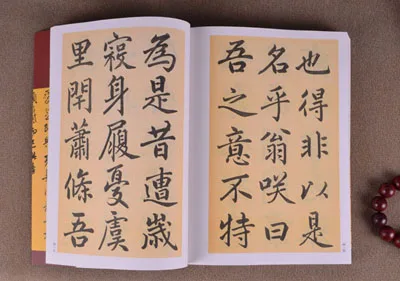 也得非以是
名乎翁咲曰
吾之意不特
為是昔遭歲
寢身履憂虞
里閈蕭條吾